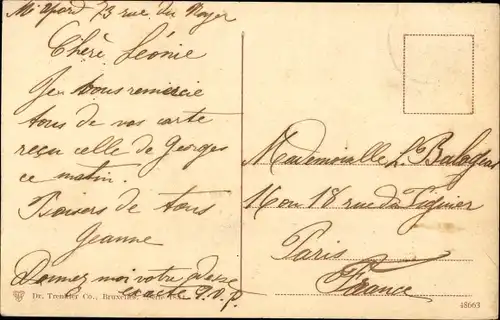 73 rue du Noyer
Chère Léonie
Je vous remercie
tous de vos carte
reçu celle de Georges
ce matin.
Baisers de tous
Jeanne
Donnez moi votre adresse
exacte S.V.P.
Mademoiselle L.
16 ou 18 rue du Figuier
Paris
France
Dr. Trenkler Co., Bruxelles,
48663